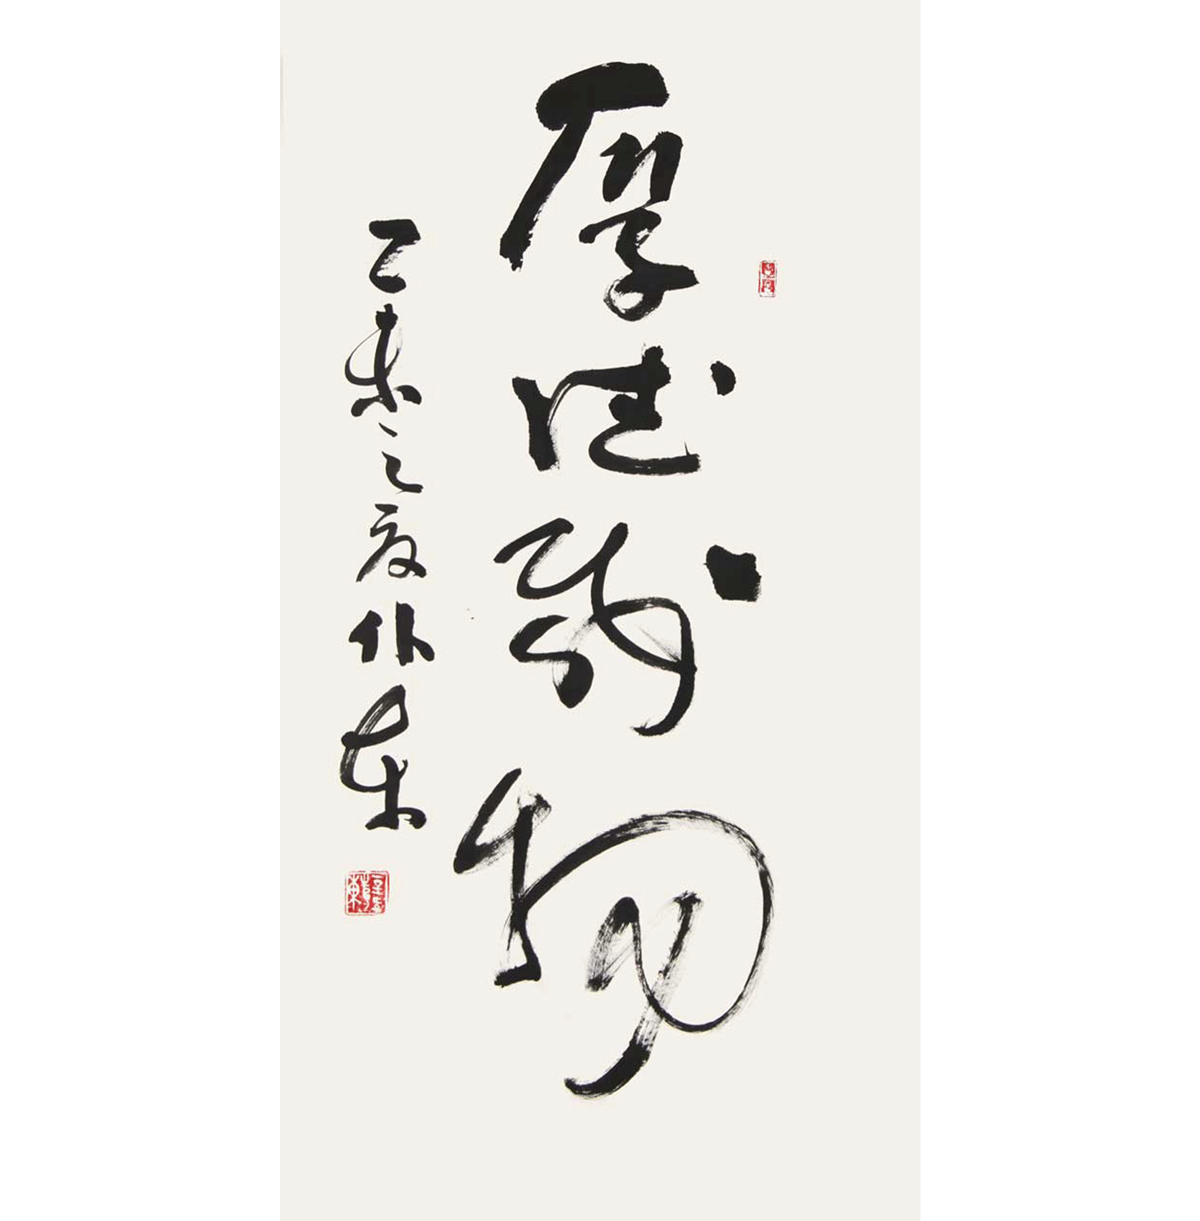 厚德载物
乙未之夏仆东